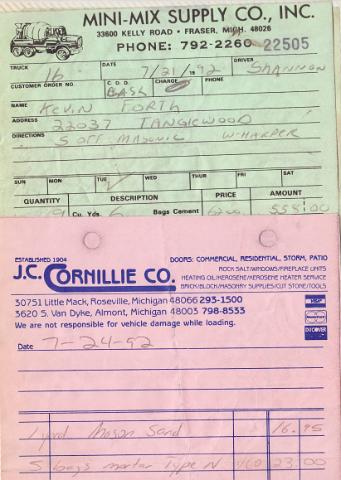 MINI-MIX SUPPLY CO., INC.
33600 KELLY ROAD • FRASER, MICH. 48026
PHONE: 792-2260 22505
TRUCK 16 DATE 7/21/1992 DRIVER SHANNON
CUSTOMER ORDER NO. C.O.D. CASH CHARGE PHONE
NAME KEVIN FORTH
ADDRESS 22037 TANGLEWOOD
DIRECTIONS S OFF MASONIC W-HARPER
SUN MON TUE WED THUR FRI SAT
QUANTITY DESCRIPTION PRICE AMOUNT
9 Cu. Yds. 6 Bags Cement 62.00 558.00
ESTABLISHED 1904
J.C. CORNILLIE CO.
DOORS: COMMERCIAL, RESIDENTIAL, STORM, PATIO
ROCK SALT/WINDOWS/FIREPLACE UNITS
HEATING OIL/KEROSENE/KEROSENE HEATER SERVICE
BRICK/BLOCK/MASONRY SUPPLIES/CUT STONE/TOOLS
30751 Little Mack, Roseville, Michigan 48066 293-1500
3620 S. Van Dyke, Almont, Michigan 48003 798-8533
We are not responsible for vehicle damage while loading.
VISA
DISCOVER
Date 7-24-92
1 yard Mason Sand 16.95
5 bags mortar Type N 4.60 23.00